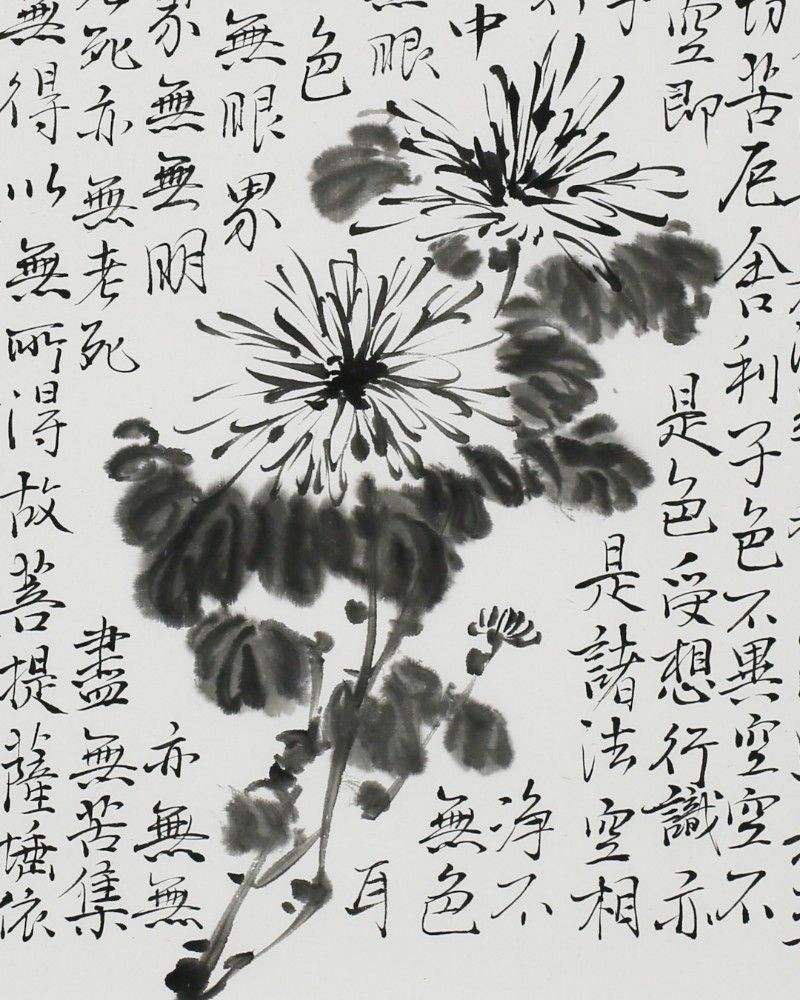 切苦厄舍利子色不異空空不
空即是色受想行識亦
是諸法空相
淨不
中無色
無眼耳
色
無眼界
無無明亦無無
死亦無老死盡無苦集
無得以無所得故菩提薩埵依